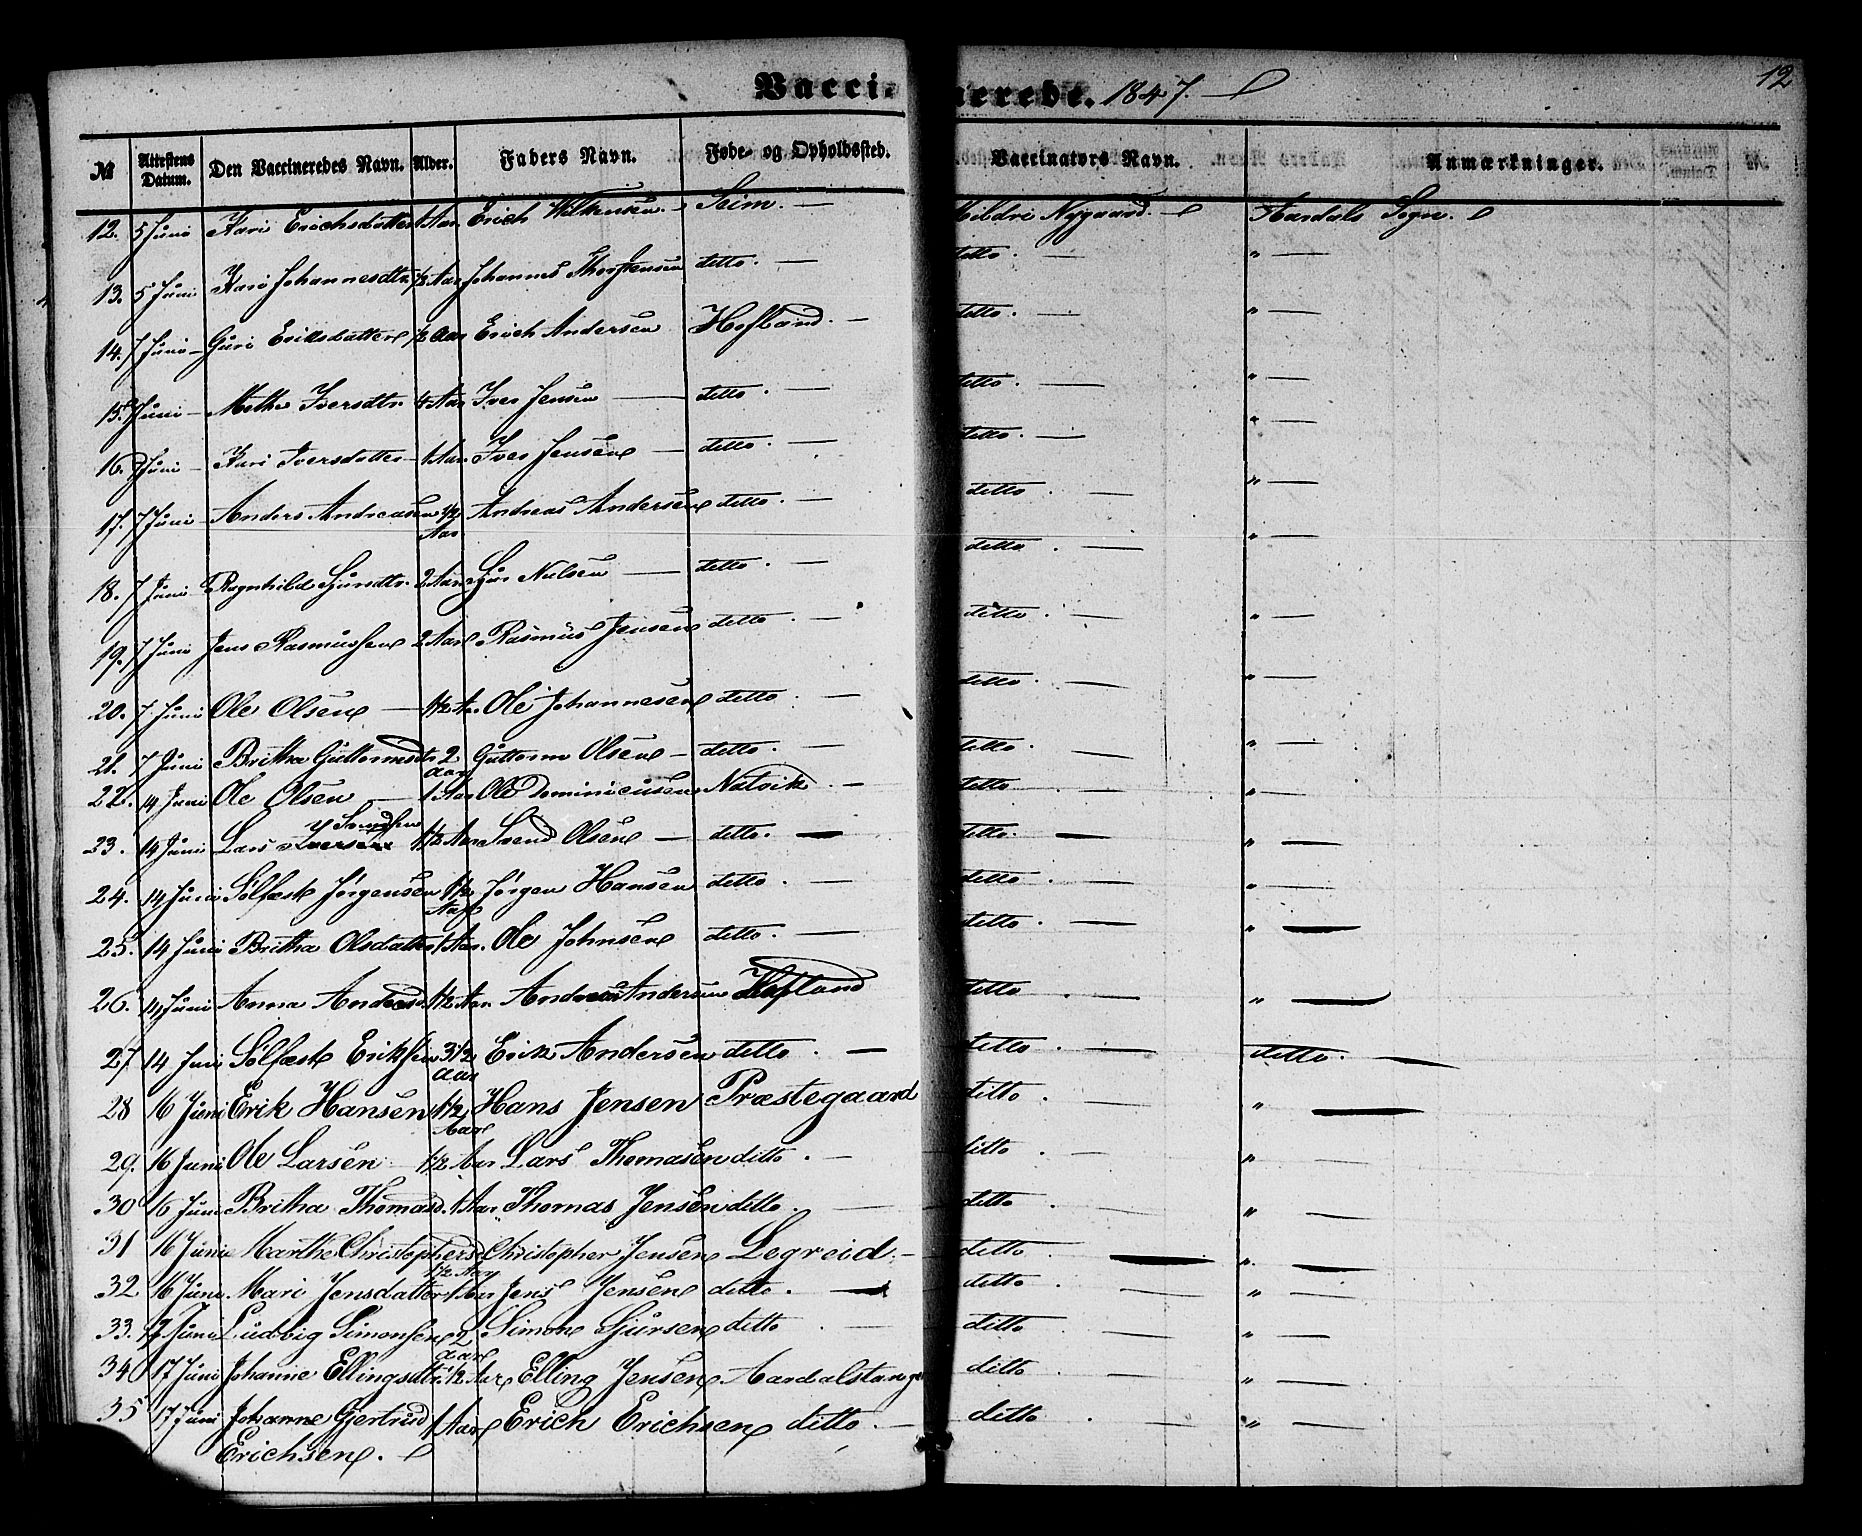 Vaccinerede. 1847.
12
№ Attestens Datum. Den Vaccineredes Navn. Alder. Faders Navn. Føde- og Opholdssted. Vaccinators Navn. Anmærkninger.
12. 5 Juni Kari Erichsdatter 1 Aar Erich Seim. — Mildri Nygaard. — Aardals Sogn.
13. 5 Juni Kari Johannesdtr. 1/2 Aar Johannes Thorstensen ditto. — ditto. — " —
14. 7 Juni — Guri Eriksdatter 1/2 Aar Erich Andersen Hofland. — ditto. — " —
15. 7 Juni — Methe Iversdtr. 4 Aar Iver Jensen — ditto. — ditto. — " —
16. 7 Juni — Kari Iversdatter — 1 Aar Iver Jensen — ditto. — ditto. — " —
17. 7 Juni — Anders Andreasen 1/2 Aar Andreas Andersen ditto. — ditto. — " —
18. 7 Juni Ragnhild Sjursdtr. 2 Aar Sjur Nielsen — ditto. — ditto. — " —
19. 7 Juni Jens Rasmussen 2 Aar Rasmus Jensen ditto. — ditto. — " —
20. 7 Juni Ole Olsen — 1 1/2 Aar Ole Johannesen ditto. — ditto. — " —
21. 7 Juni Britha Guttormsdtr 2 Aar Guttorm Olsen — ditto. — ditto. — " —
22. 14 Juni Ole Olsen — 1 Aar Ole Dominicusen Natvik. — ditto — " —
23. 14 Juni Lars Iversen Svendsen 1 1/2 Aar Svend Olsen — ditto. — ditto. — " —
24. 14 Juni Sølfest Jørgensen 1 1/2 Aar Jørgen Hansen ditto. — ditto. — " —
25. 14 Juni Britha Olsdatter 1 Aar. Ole Johnsen ditto. — ditto. — " —
26. 14 Juni Anna Andersd. 1 1/2 Aar Andreas Andersen Hofland ditto. — " —
27 14 Juni Sølfest Eriksen 3 1/2 Aar Erik Andersen ditto. — ditto. — ditto. —
28 16 Juni Erik Hansen 1 1/2 Aar Hans Jensen Præstegaard ditto. — " —
29. 16 Juni Ole Larsen — 1 1/2 Aar Lars Thomasen ditto. — ditto. — " —
30 16 Juni Britha Thomasd. 1 Aar Thomas Jensen ditto. — ditto. — " —
31 16 Juni Marthe Christophersd 1 1/2 Aar Christopher Jensen Legreid. — ditto. — " —
32 16 Juni Mari Jensdatter 1 Aar Jens Jensen ditto. — ditto. — " —
33. 17 Juni Ludvig Simonsen 2 Aar Simon Sjursen ditto. — ditto. — " —
34 17 Juni Johanne Ellingsdtr. 1/2 Aar Elling Jensen Aardalstangen ditto. — " —
35 17 Juni Johanne Gjertrud 1 Aar Erich Erichsen ditto. — ditto. — " —
Erichsen. —